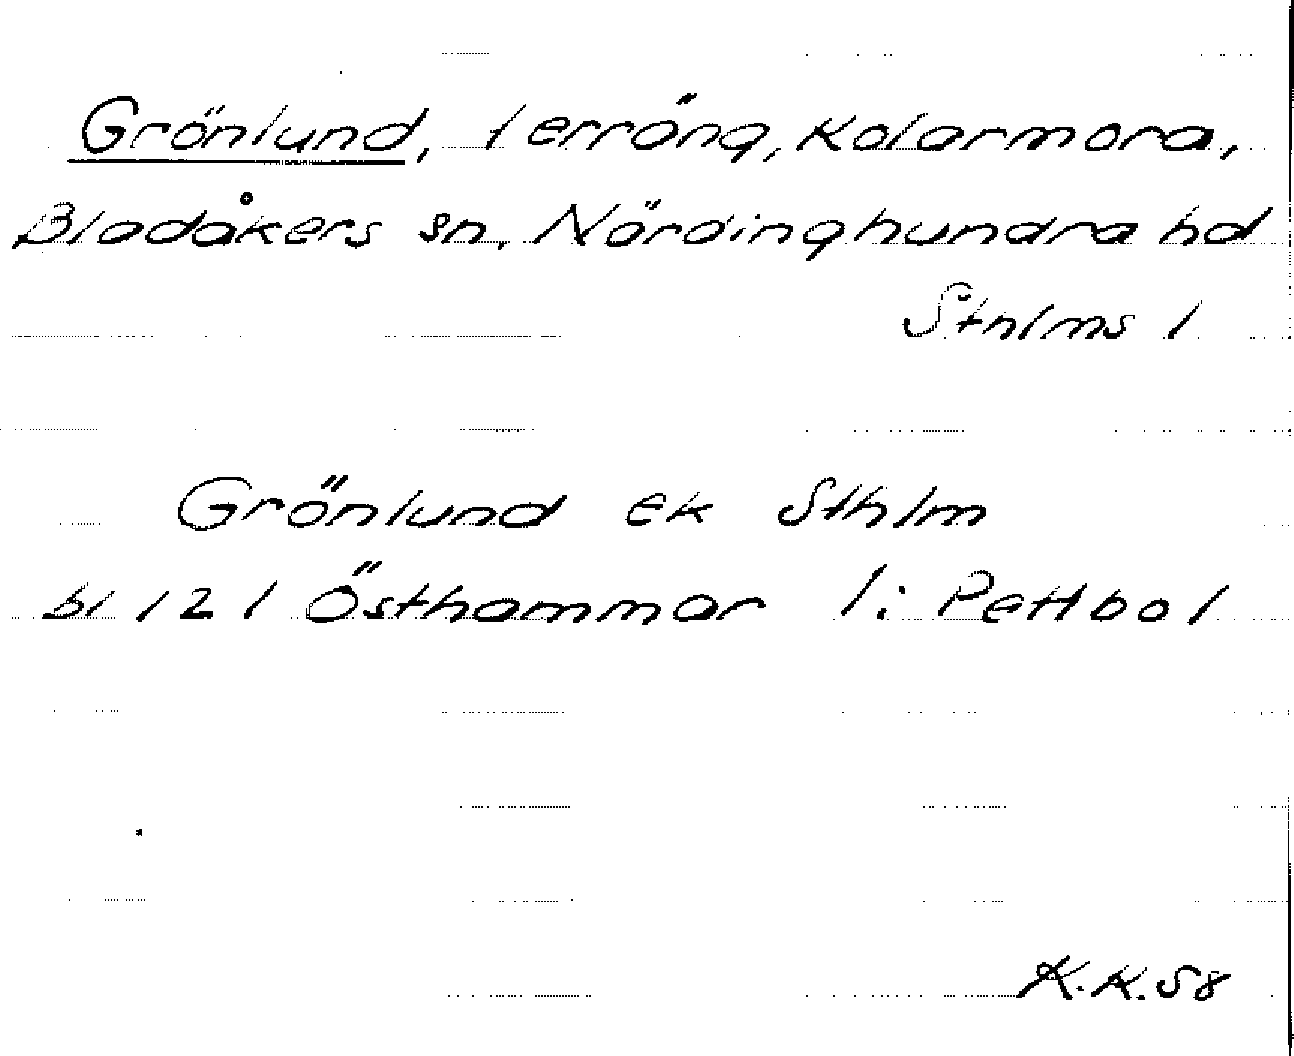 Grönlund, terräng, Kolarmora,
Bladåkers sn, Närdinghundra hd
Sthlms l
Grönlund Ek Sthlm
bl 121 Östhammar l: Pettbol
K.K. 58